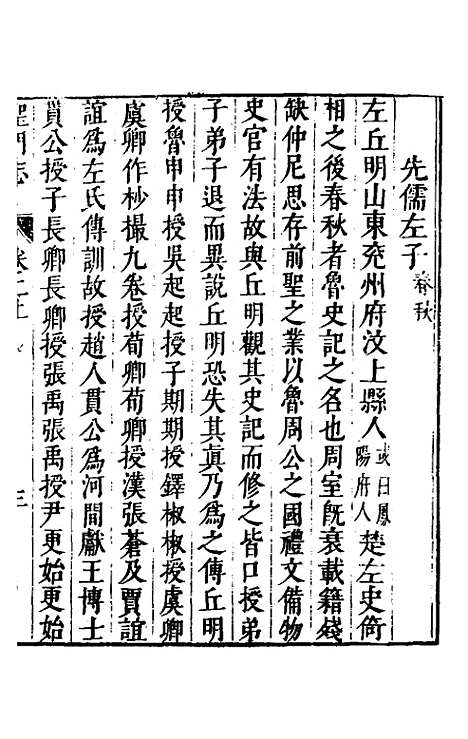 先儒左子春秋
左丘明山東兖州府汶上縣人或曰鳳陽府人楚左史倚
相之後春秋者魯史記之名也周室旣衰載籍殘
缺仲尼思存前聖之業以魯周公之國禮文備物
史官有法故與丘明觀其史記而修之皆口授弟
子弟子退而異說丘明恐失其眞乃爲之傳丘明
授魯申申授吳起起授子期期授鐸椒椒授虞卿
虞卿作抄撮九卷授荀卿荀卿授漢張蒼及賈誼
誼爲左氏傳訓故授趙人貫公爲河間獻王博士
貫公授子長卿長卿授張禹張禹授尹更始更始
聖門志 卷二 三